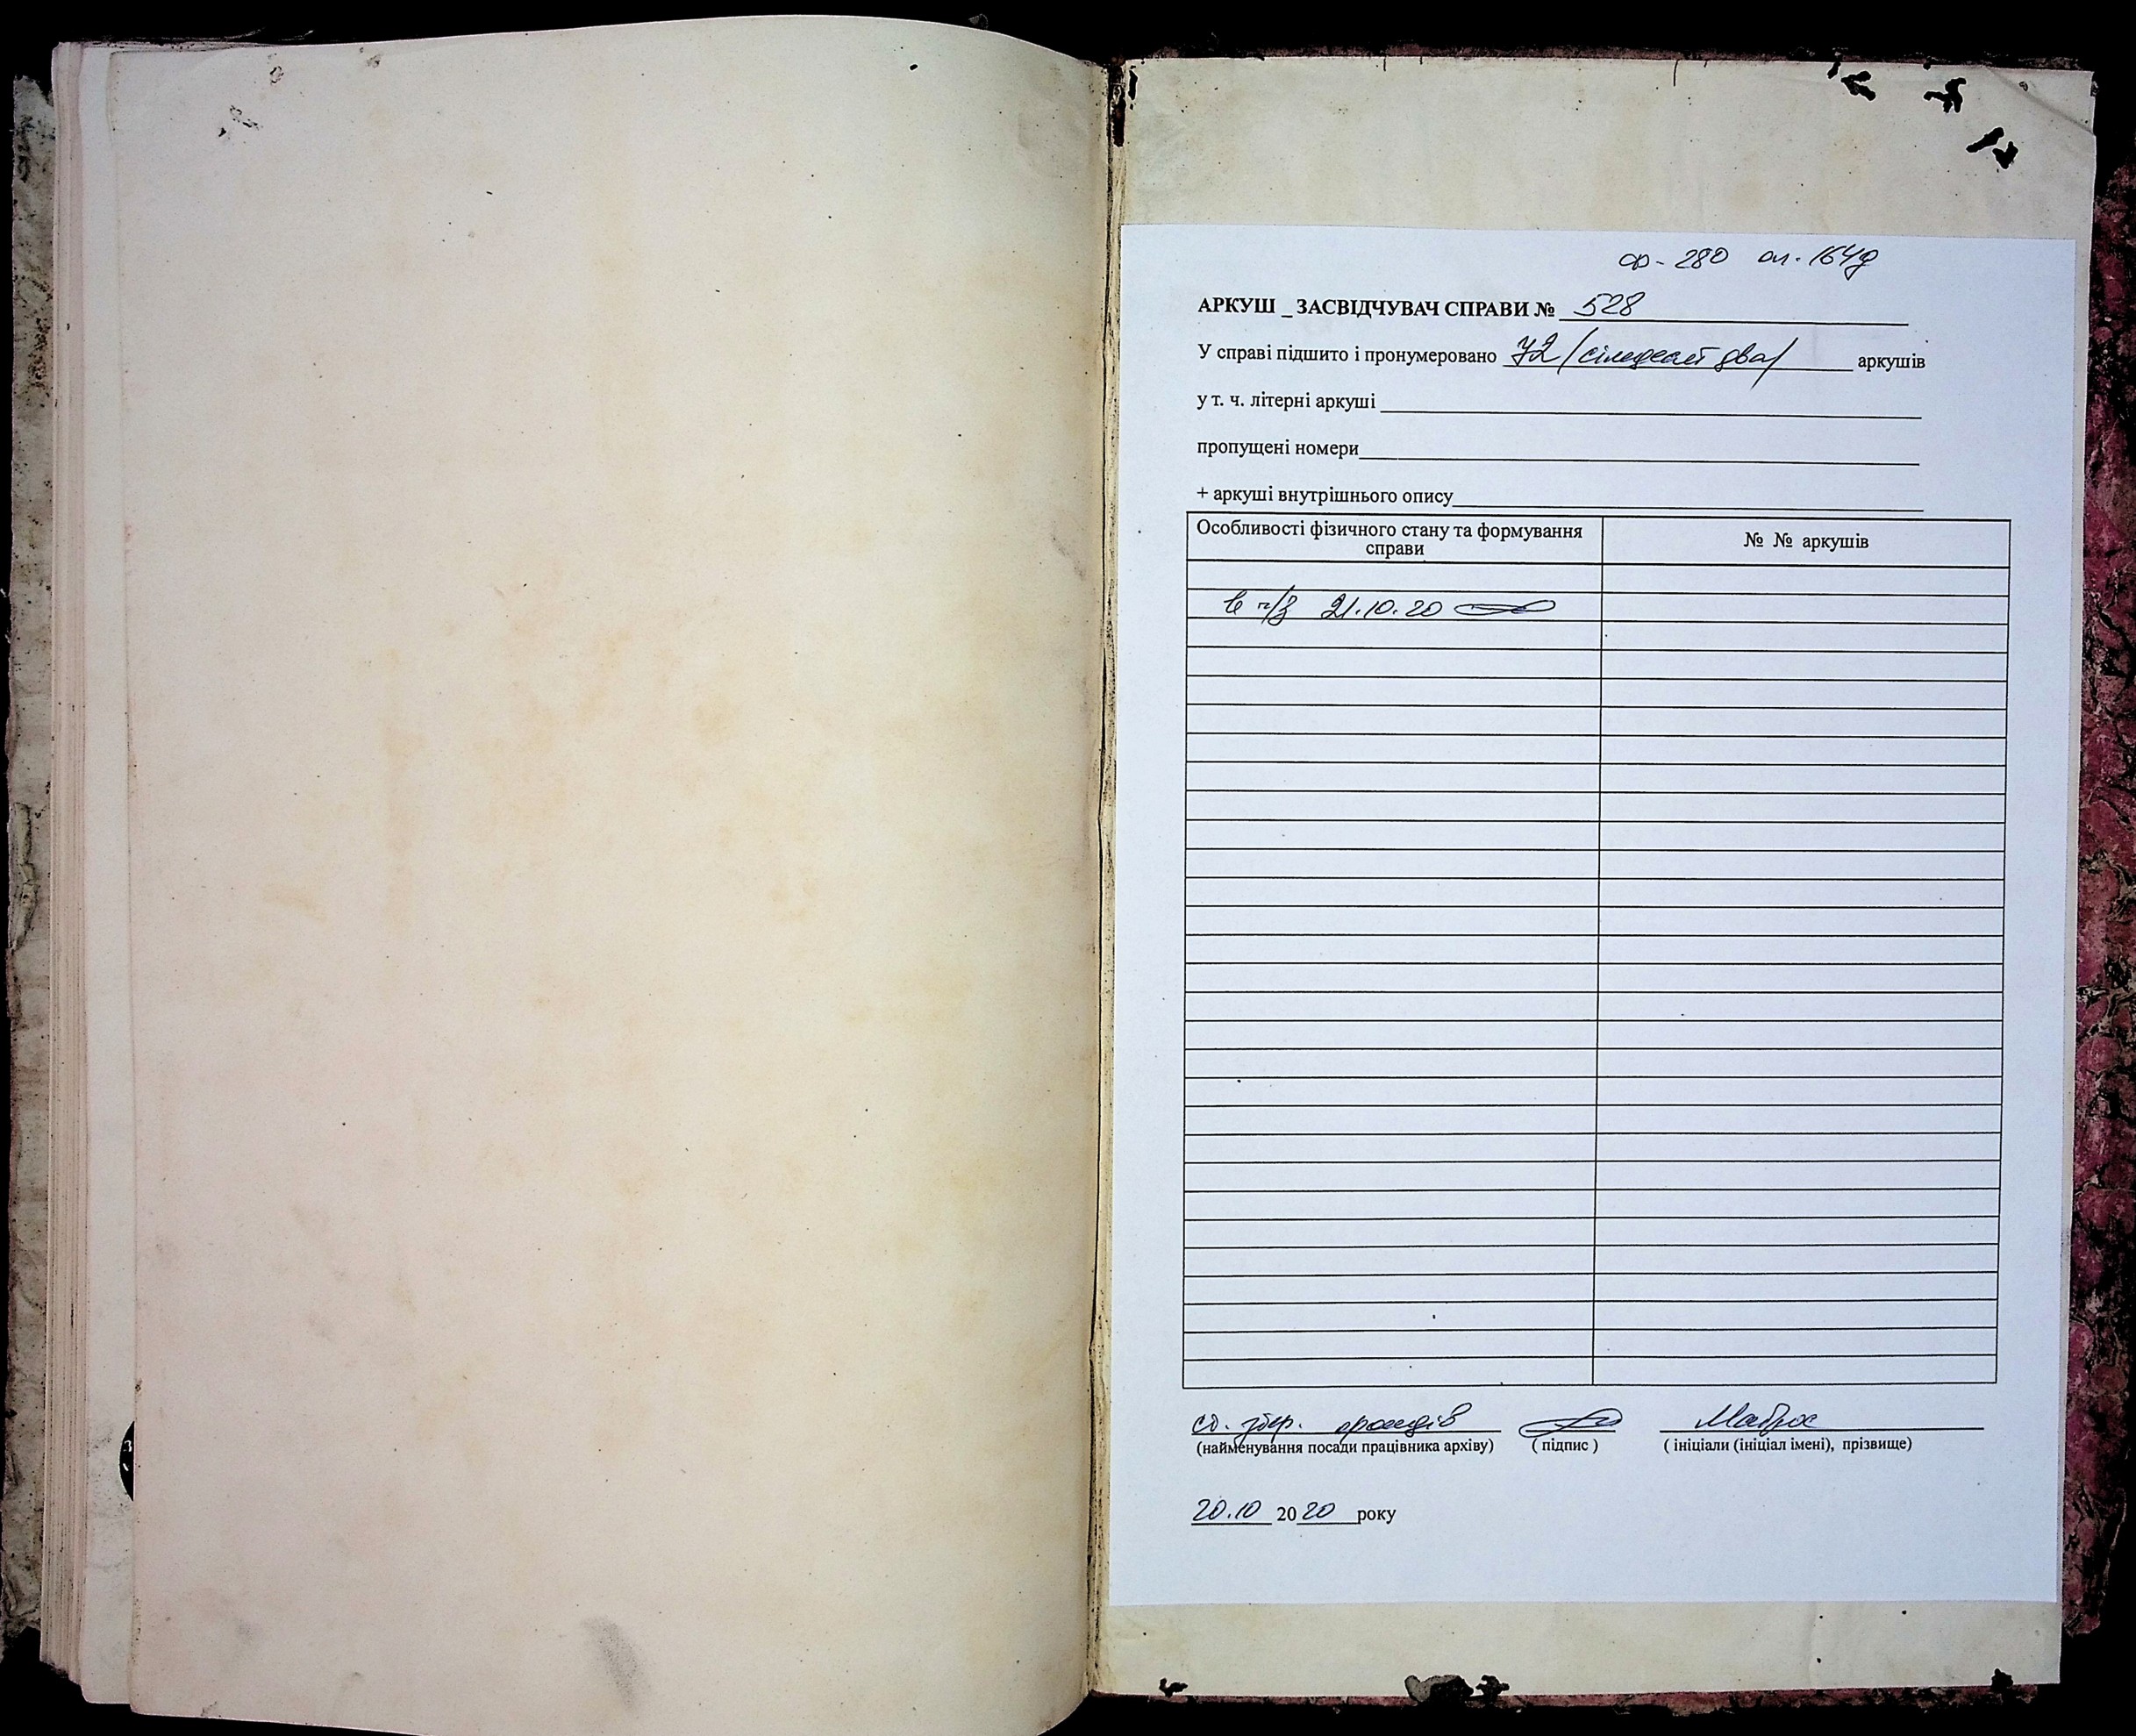 ф-280 оп. 164д
АРКУШ _ ЗАСВІДЧУВАЧ СПРАВИ № 528
У справі підшито і пронумеровано 72 /сімдесят два/ аркушів
у т. ч. літерні аркуші
пропущені номери
+ аркуші внутрішнього опису
Особливості фізичного стану та формування справи
№ № аркушів
21.10.20
збер. фондів
(найменування посади працівника архіву) ( підпис ) ( ініціали (ініціал імені), прізвище)
20.10 2020 року